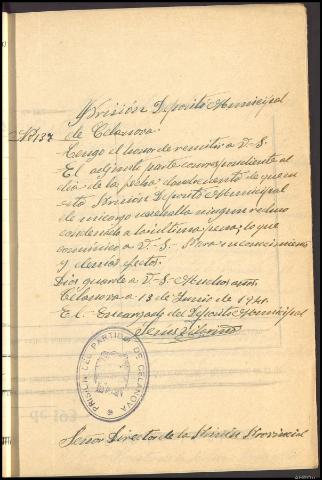 Prisión Deposito Municipal
Nº 137
de Celanova.
Tengo el honor de remitir a V.S.
El adjunto parte correspondiente al
dia de la fecha, dando cuenta de que en
esta Prisión Deposito Municipal
de mi cargo no resulta ningun recluso
condenado a la ultima pena, lo que
comunico a V.S. Para su conocimiento
y demas efectos.
Dios guarde a V.S. Muchos años.
Celanova a 13 de Junio de 1941.
El Encargado del Deposito Municipal
PRISION DEL PARTIDO DE CELANOVA
Señor Director de la Prisión Provincial